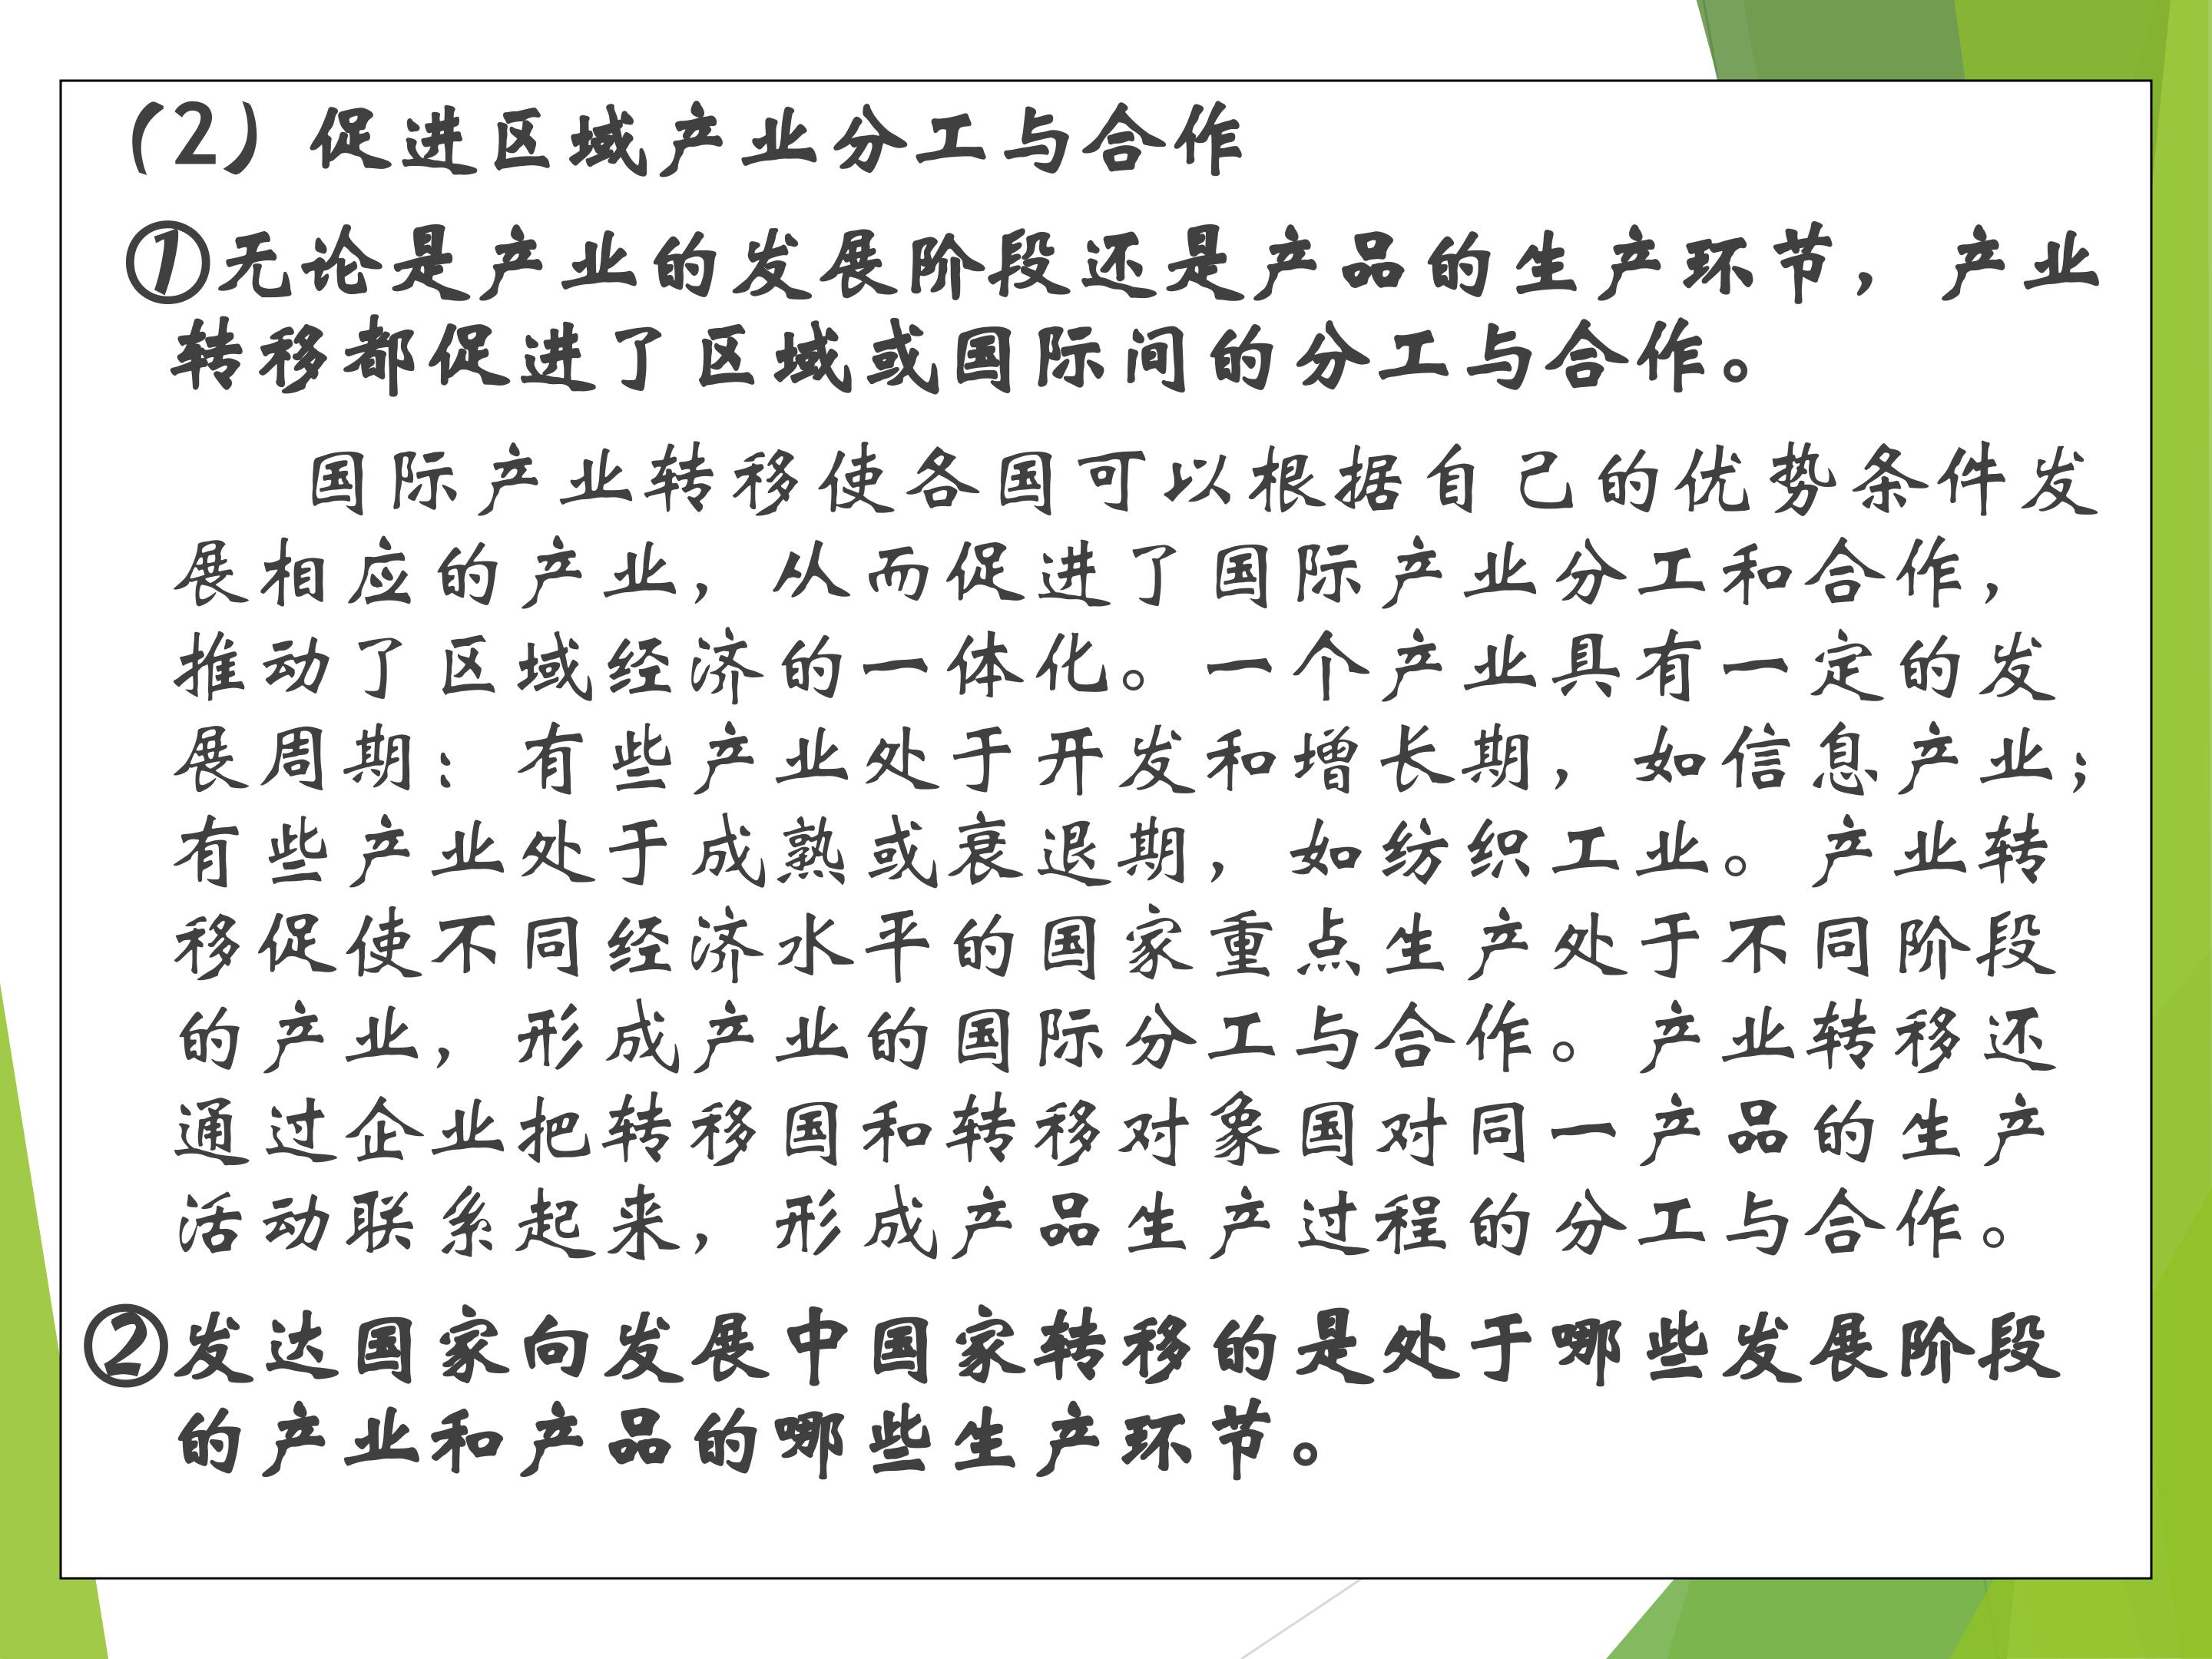 (2) 促进区域产业分工与合作
①无论是产业的发展阶段还是产品的生产环节，产业
转移都促进了区域或国际间的分工与合作。
国际产业转移使各国可以根据自己的优势条件发
展相应的产业，从而促进了国际产业分工和合作，
推动了区域经济的一体化。一个产业具有一定的发
展周期：有些产业处于开发和增长期，如信息产业；
有些产业处于成熟或衰退期，如纺织工业。产业转
移促使不同经济水平的国家重点生产处于不同阶段
的产业，形成产业的国际分工与合作。产业转移还
通过企业把转移国和转移对象国对同一产品的生产
活动联系起来，形成产品生产过程的分工与合作。
②发达国家向发展中国家转移的是处于哪些发展阶段
的产业和产品的哪些生产环节。